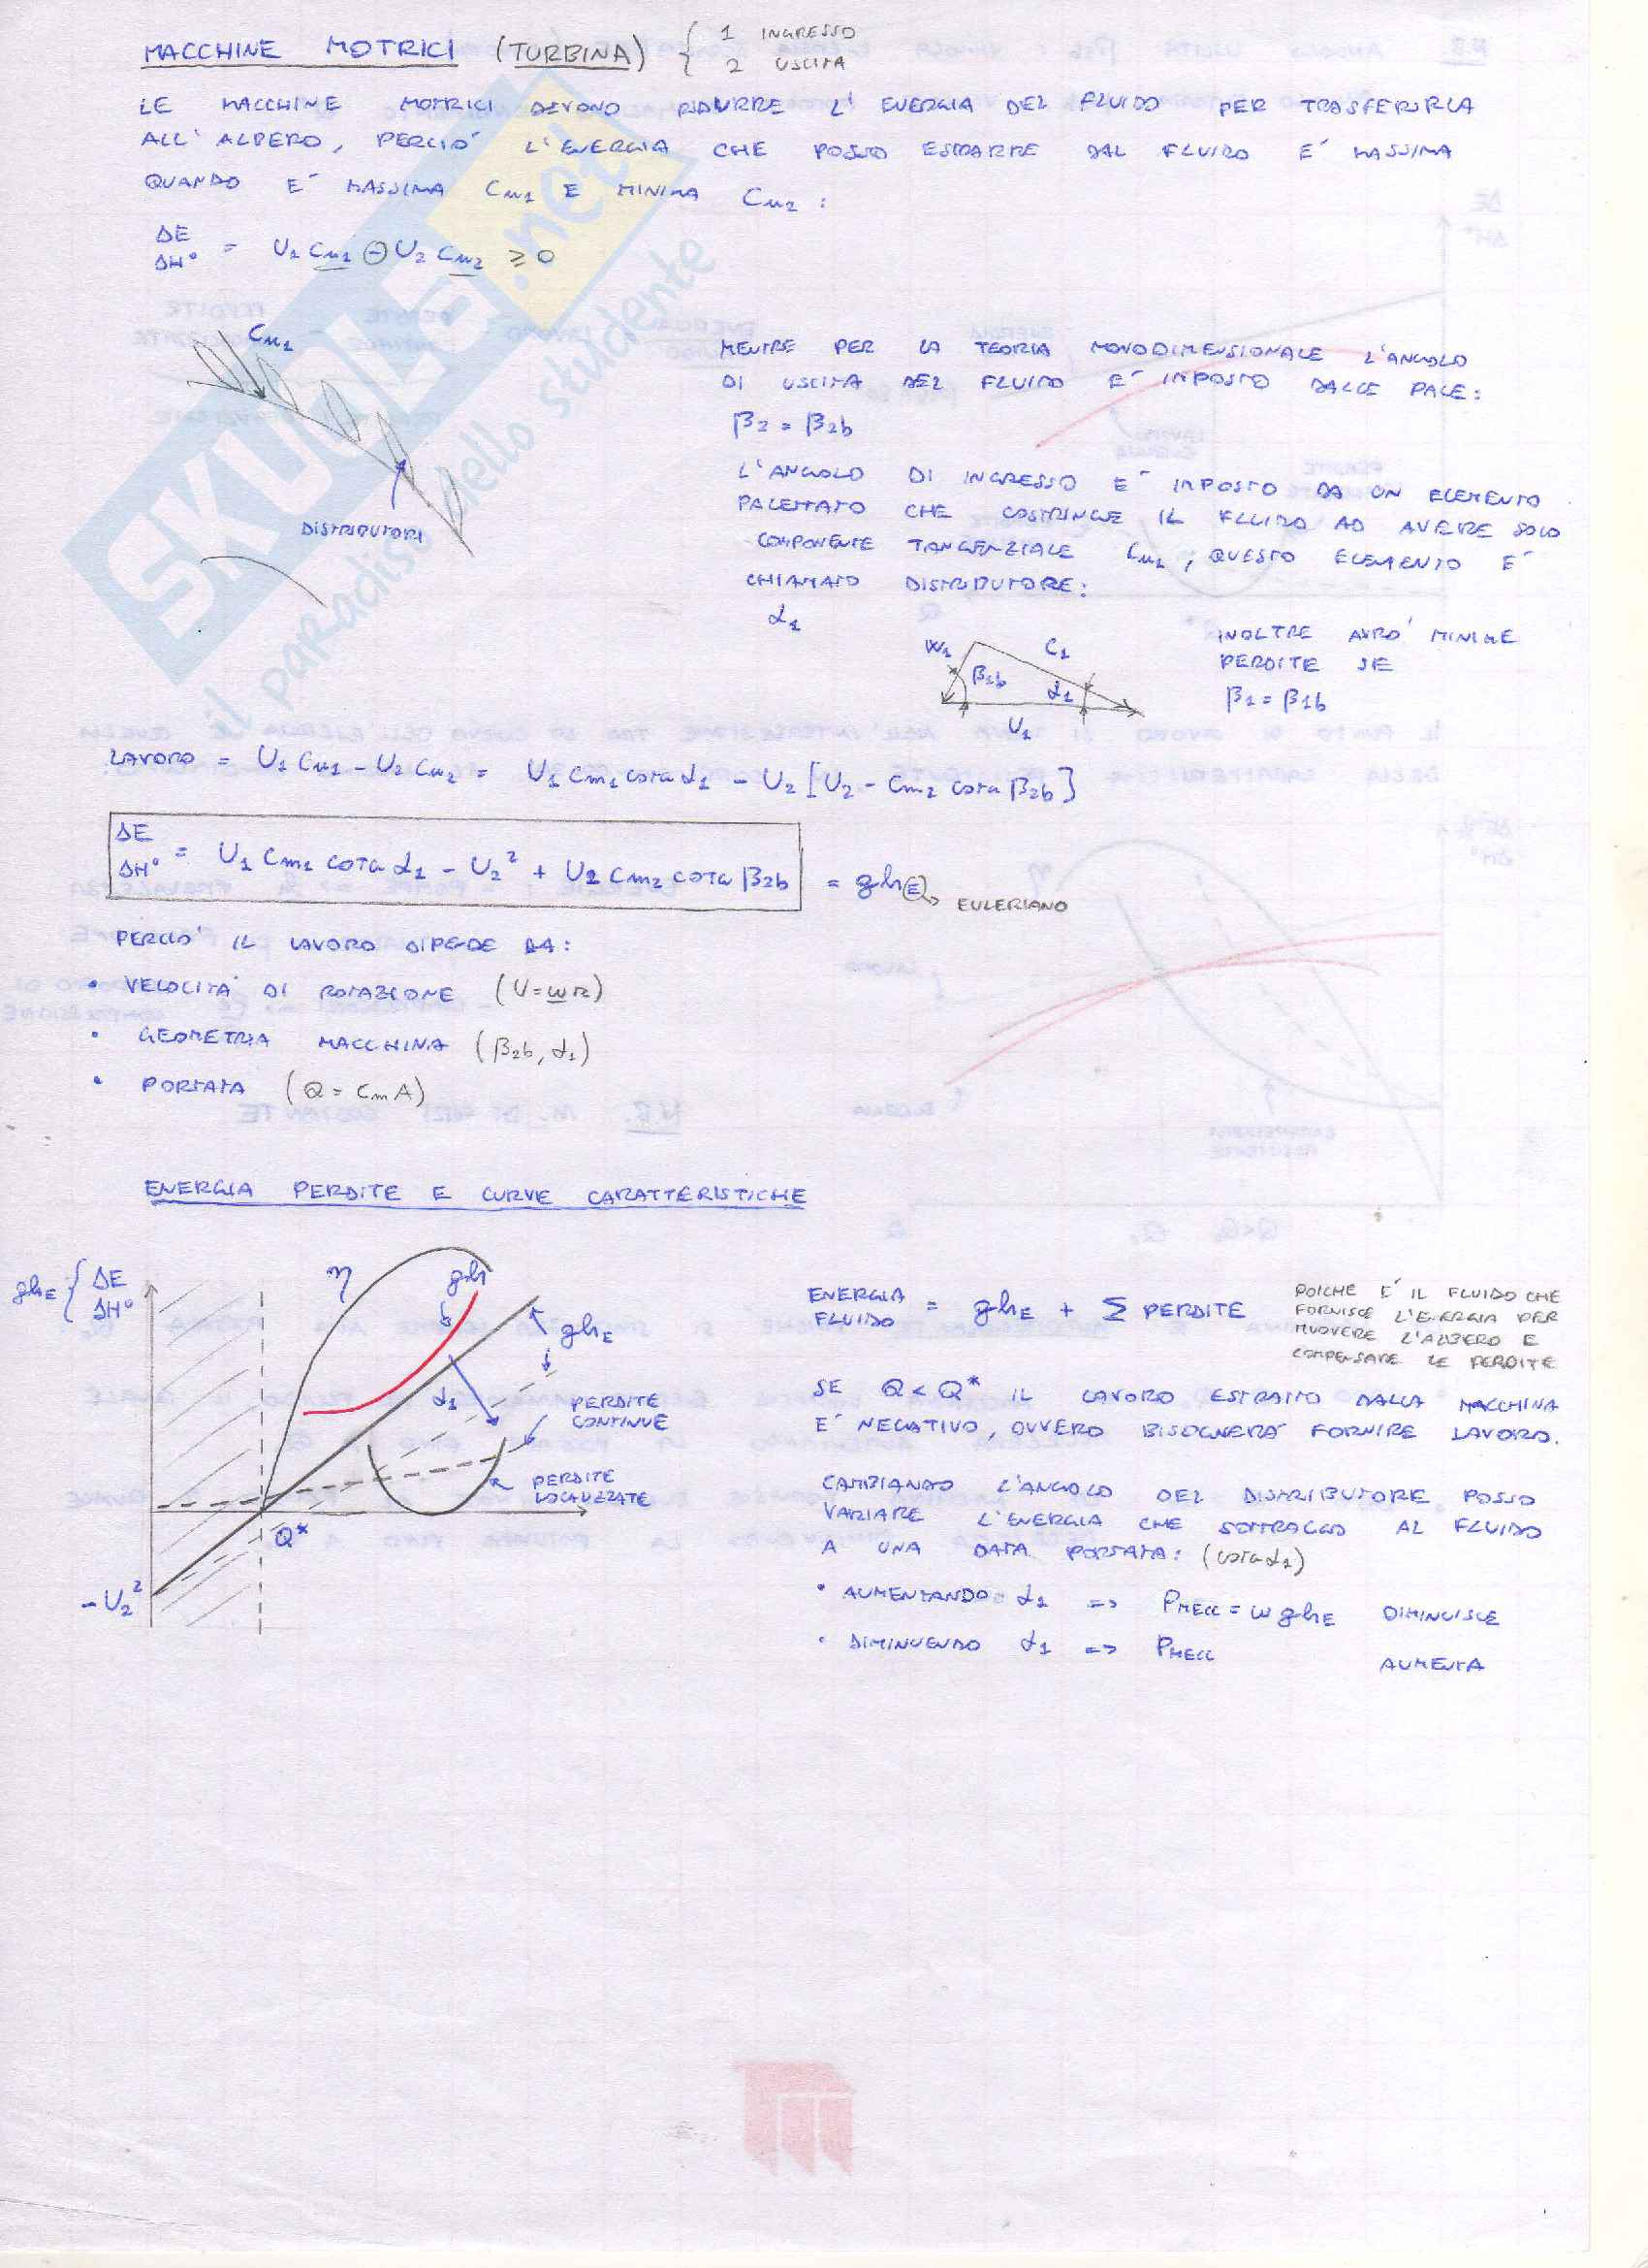 MACCHINE MOTRICI (TURBINA) { 1 INGRESSO
2 USCITA
LE MACCHINE MOTRICI DEVONO RIDURRE L'ENERGIA DEL FLUIDO PER TRASFERIRLA
ALL'ALBERO, PERCIO' L'ENERGIA CHE POSSO ESTRARRE DAL FLUIDO E' MASSIMA
QUANDO E' MASSIMA Cu1 E MINIMA Cu2 :
ΔE
ΔH° = U1 Cu1 - U2 Cu2 ≥ 0
Cu1
DISTRIBUTORI
MENTRE PER LA TEORIA MONODIMENSIONALE L'ANGOLO
DI USCITA DEL FLUIDO E' IMPOSTO DALLE PALE:
β2 = β2b
L'ANGOLO DI INGRESSO E' IMPOSTO DA UN ELEMENTO
PALETTATO CHE COSTRINGE IL FLUIDO AD AVERE SOLO
COMPONENTE TANGENZIALE Cu1, QUESTO ELEMENTO E'
CHIAMATO DISTRIBUTORE:
α1
W1 C1
β1b α1
U1
INOLTRE AVRO' MINIME
PERDITE SE
β1 = β1b
LAVORO = U1 Cu1 - U2 Cu2 = U1 Cm1 cotg α1 - U2 [U2 - Cm2 cotg β2b]
ΔE
ΔH° = U1 Cm1 COTG α1 - U2² + U2 Cm2 COTG β2b = ghE → EULERIANO
PERCIO' IL LAVORO DIPENDE DA:
• VELOCITA' DI ROTAZIONE (U = ωR)
• GEOMETRIA MACCHINA (β2b, α1)
• PORTATA (Q = Cm A)
ENERGIA PERDITE E CURVE CARATTERISTICHE
ghE { ΔE
ΔH°
η
gh
ghE
α1
PERDITE
CONTINUE
PERDITE
LOCALIZZATE
Q*
-U2²
ENERGIA
FLUIDO = ghE + Σ PERDITE
POICHE E' IL FLUIDO CHE
FORNISCE L'ENERGIA PER
MUOVERE L'ALBERO E
COMPENSARE LE PERDITE
SE Q < Q* IL LAVORO ESTRATTO DALLA MACCHINA
E' NEGATIVO, OVVERO BISOGNERA' FORNIRE LAVORO.
CAMBIANDO L'ANGOLO DEL DISTRIBUTORE POSSO
VARIARE L'ENERGIA CHE SOTTRAGGO AL FLUIDO
A UNA DATA PORTATA: (cotg α1)
• AUMENTANDO α1 => PMECC = ω ghE DIMINUISCE
• DIMINUENDO α1 => PMECC AUMENTA
SKUOLA.net
il paradiso dello studente